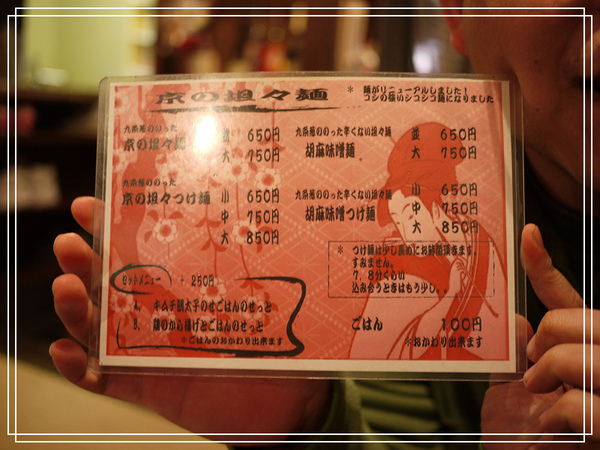 京の坦々麺
* 麺がリニューアルしました!
コシの強いシコシコ麺になりました
九条葱ののった
京の坦々麺 並 650円
大 750円
九条葱ののった辛くない坦々麺
胡麻味噌麺 並 650円
大 750円
九条葱ののった
京の坦々つけ麺 小 650円
中 750円
大 850円
九条葱ののった辛くない坦々麺
胡麻味噌つけ麺 小 650円
中 750円
大 850円
* つけ麺は少し長めにお時間頂きます。
すみません。
7、8分くらい
込み合うときはもう少し。
セットメニュー + 250円
A. キムチ明太子のせごはんのせっと
B. 鶏のから揚げとごはんのせっと
※ごはんのおかわり出来ます
ごはん 100円
※おかわり出来ます